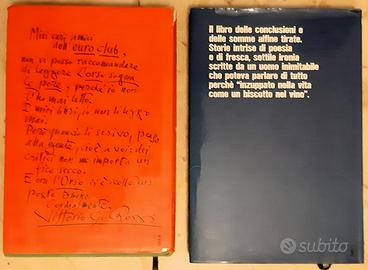 Miei cari amici
dell'euroclub,
non vi posso raccomandare
di leggere L'orso sogna
le pere, perché io non
l'ho mai letto.
I miei libri, io non li leggo
mai.
Però quando li scrivo, penso
alla gente, cioè a voi: dei
critici non me importa un
fico secco.
E ora l'Orso
posto
Cordialmente,
Vittorio G. Rossi
Il libro delle conclusioni e
delle somme alfine tirate.
Storie intrise di poesia
e di fresca, sottile ironia
scritte da un uomo inimitabile
che poteva parlare di tutto
perchè "inzuppato nella vita
come un biscotto nel vino".
subito